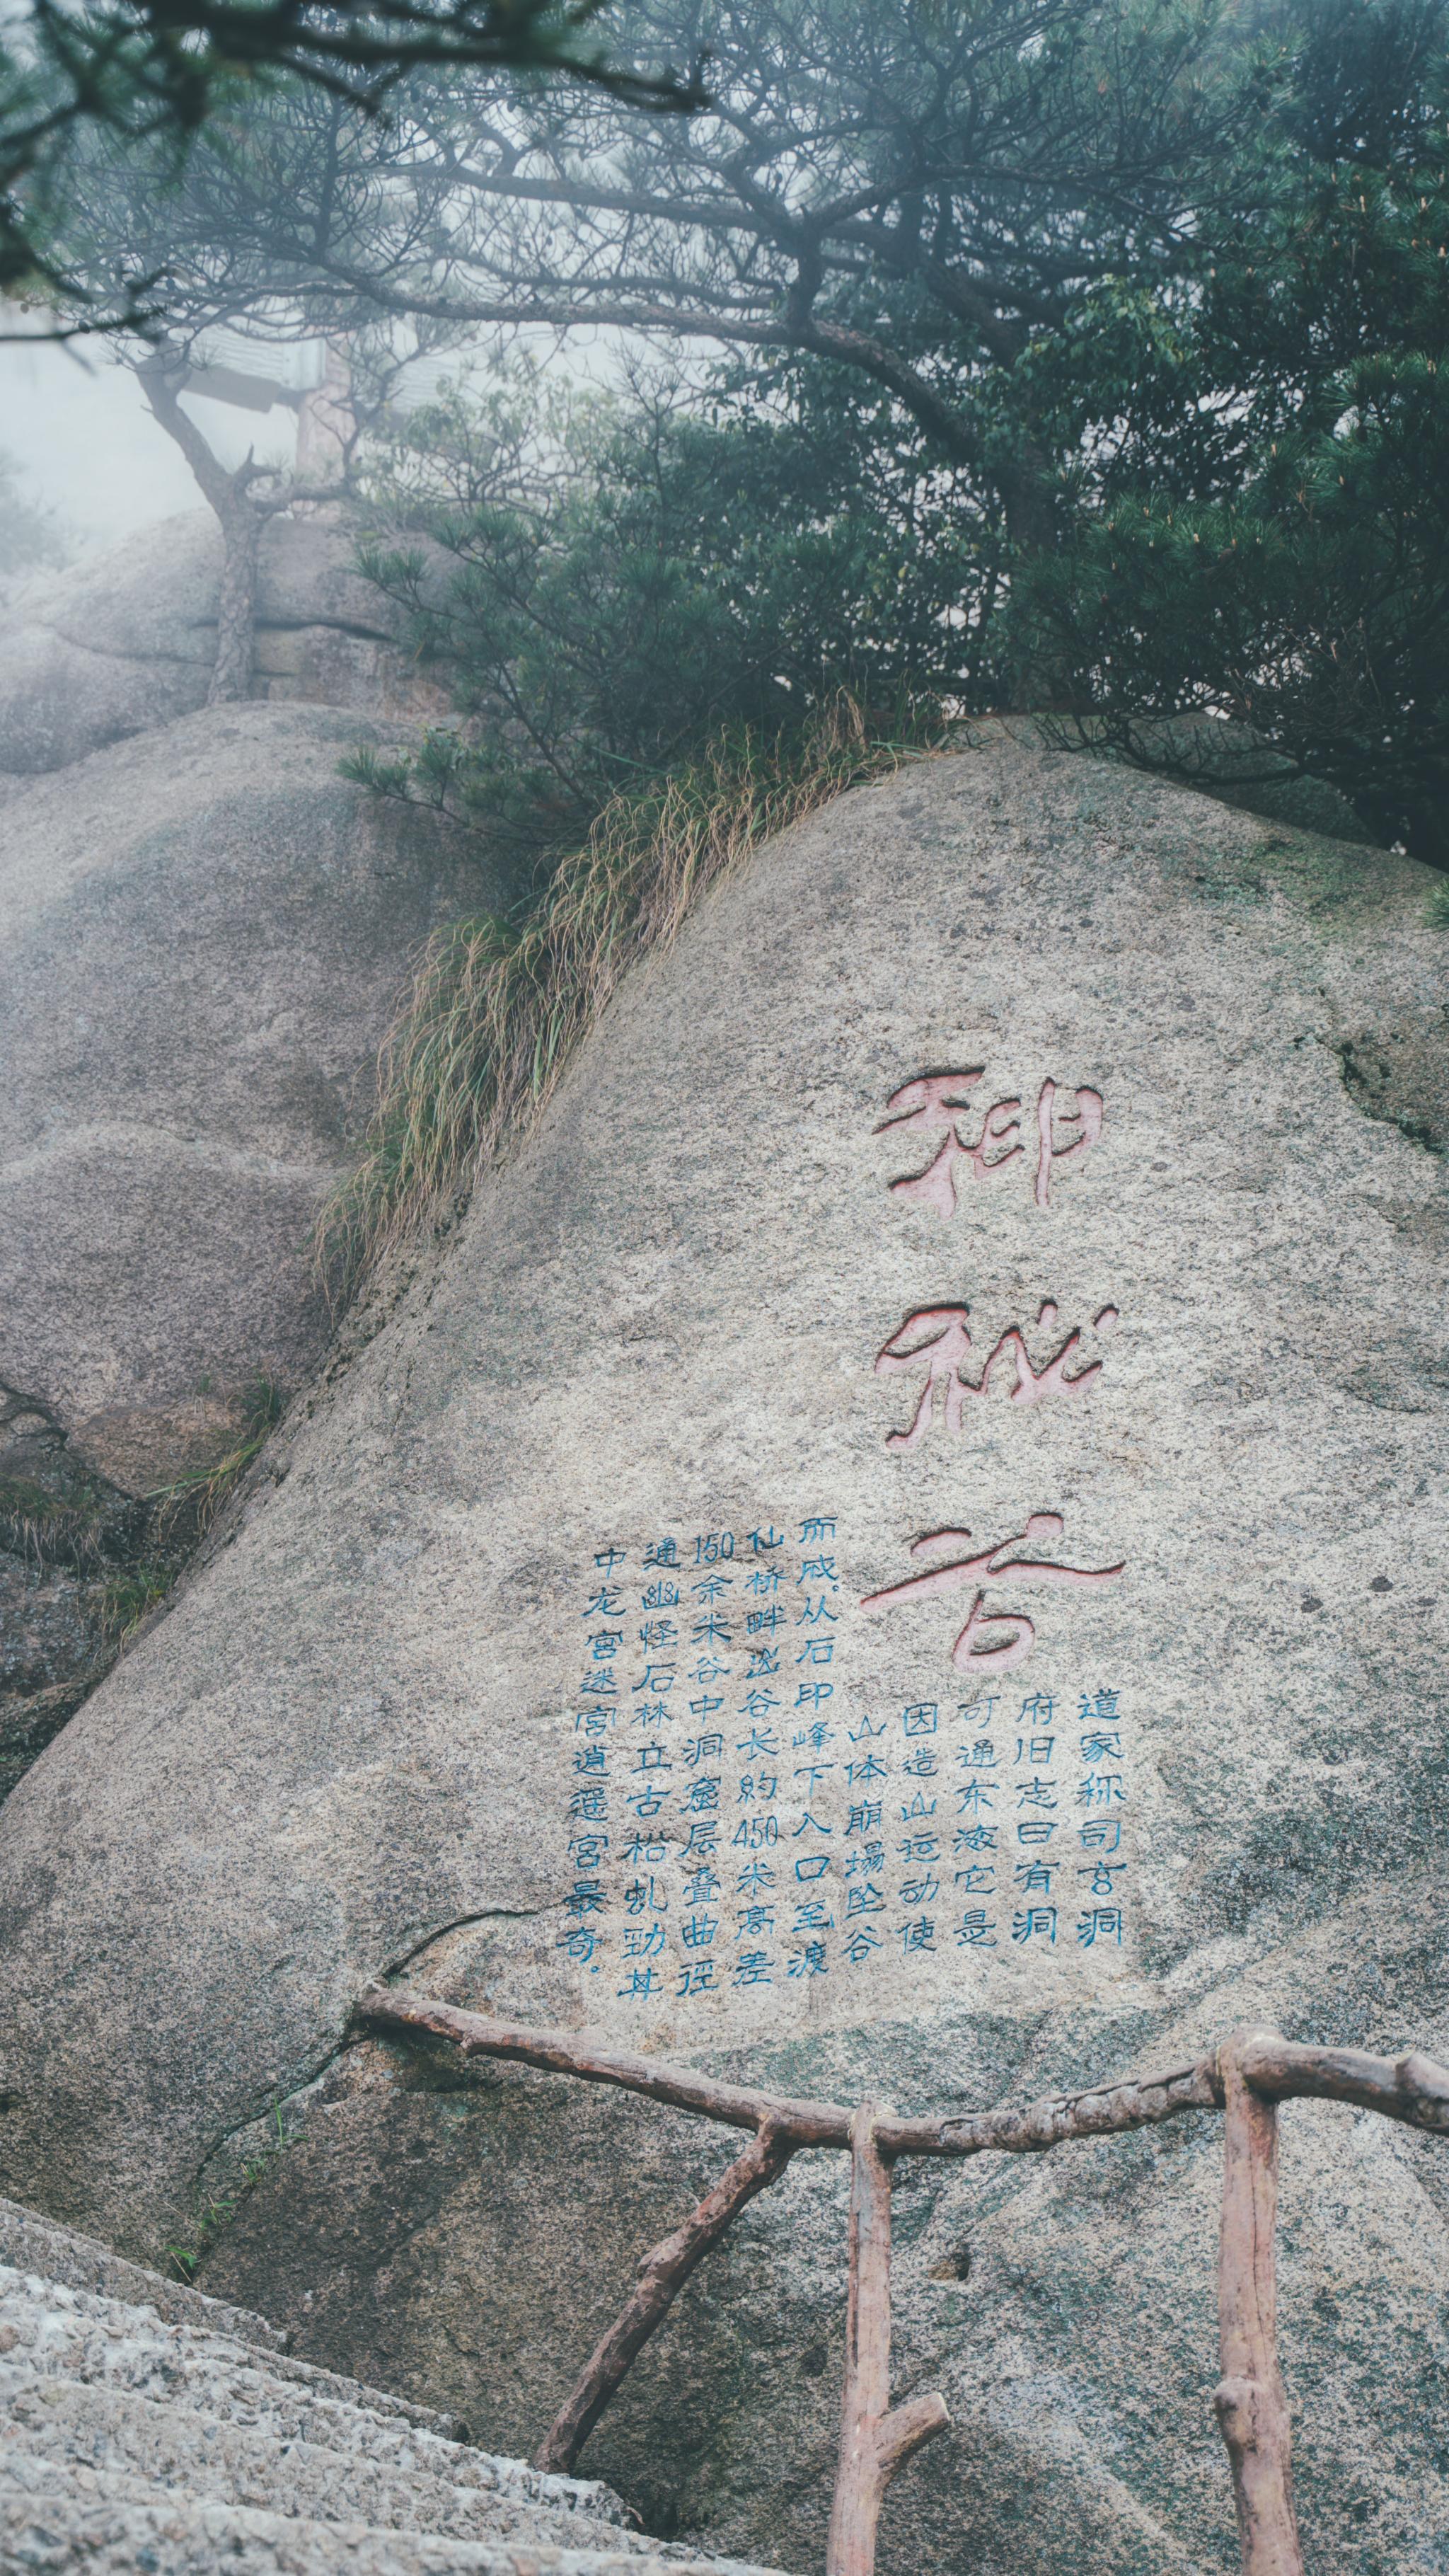 神秘谷
道家称司玄洞
府旧志曰有洞
可通东海它是
因造山运动使
山体崩塌坠谷
而成。从石印峰下入口至渡
仙桥畔出谷长約450米高差
150余米谷中洞窟层叠曲径
通幽怪石林立古松虬勁其
中龙宫迷宫逍遥宫最奇。